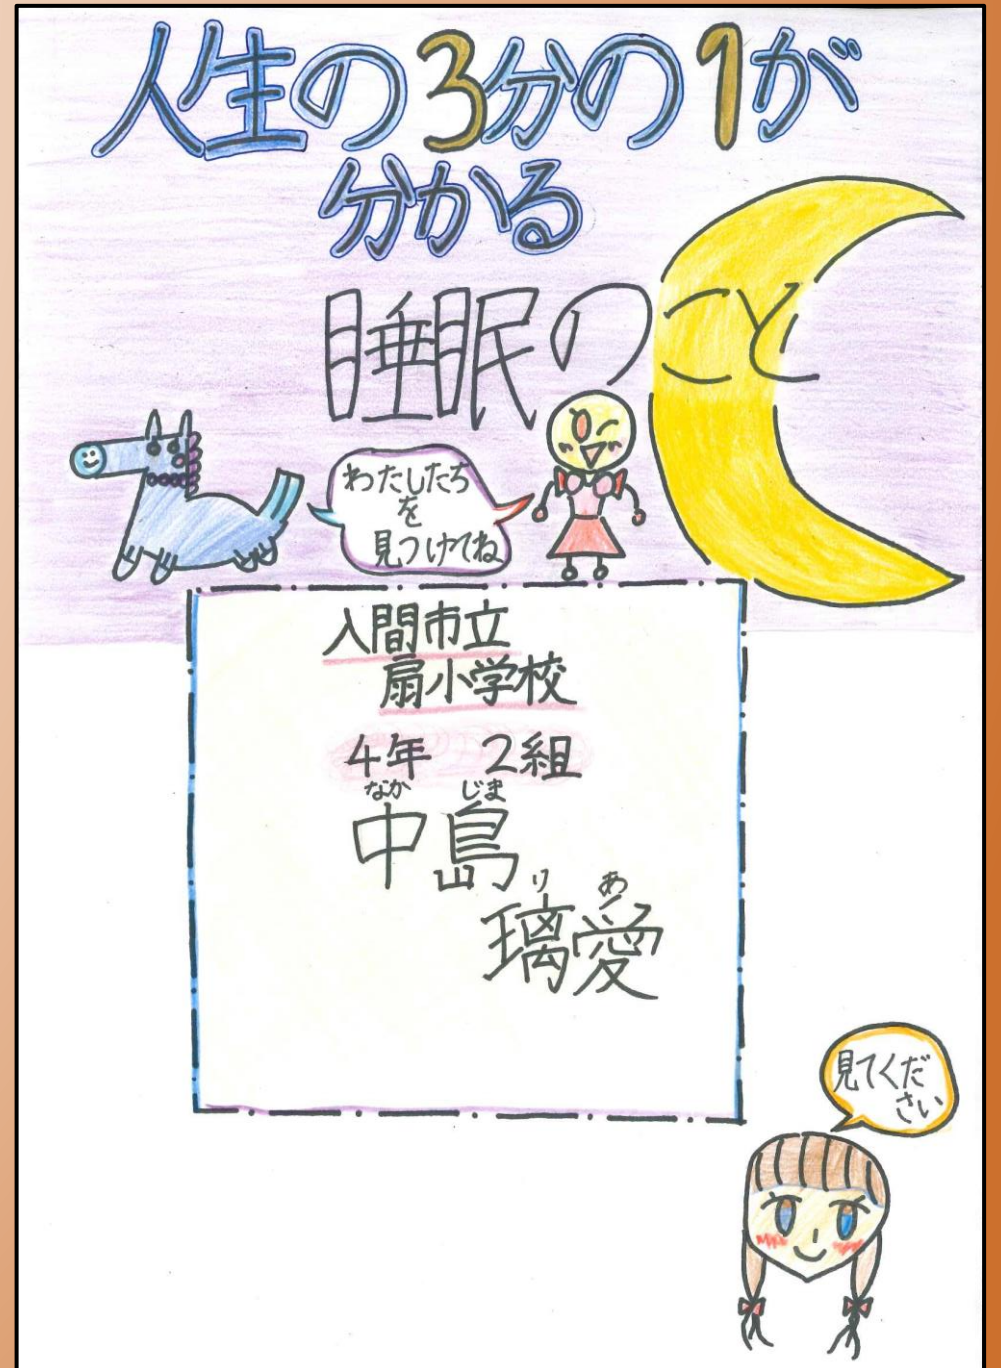 人生の3分の1が
分かる
睡眠のこと
わたしたち
を
見つけてね
入間市立
扇小学校
4年 2組
なか じま
中島
り あ
璃愛
見てくだ
さい